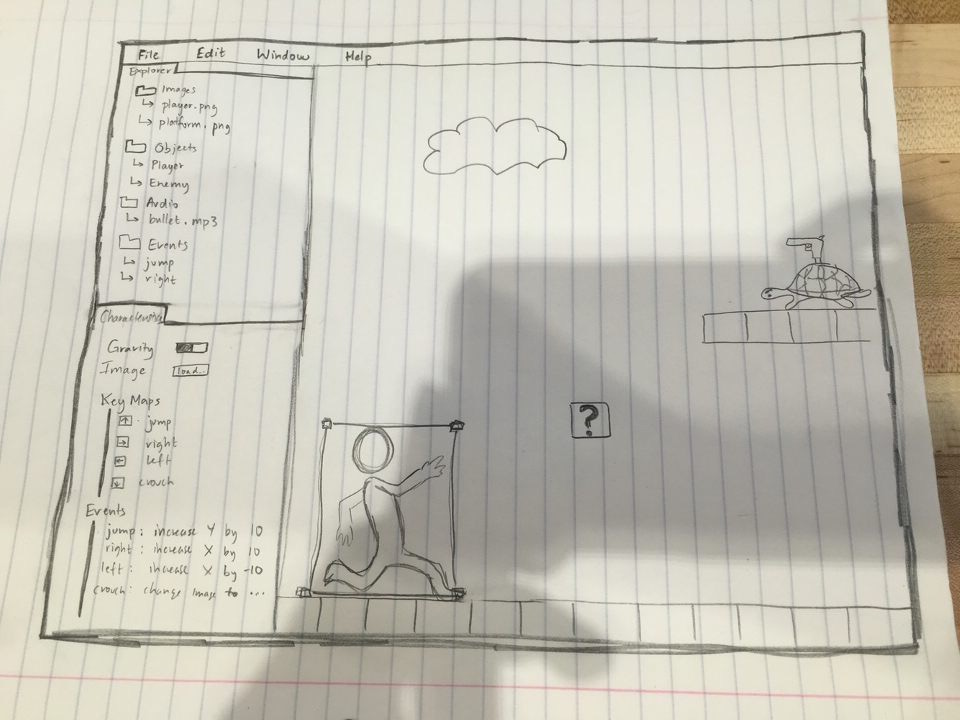 File Edit Window Help
Explorer
Images
player.png
platform.png
Objects
Player
Enemy
Audio
bullet.mp3
Events
jump
right
Gravity
Image load..
Key Maps
jump
right
left
crouch
Events
jump: increase Y by 10
right: increase X by 10
left: increase X by -10
crouch: change image to ...
?